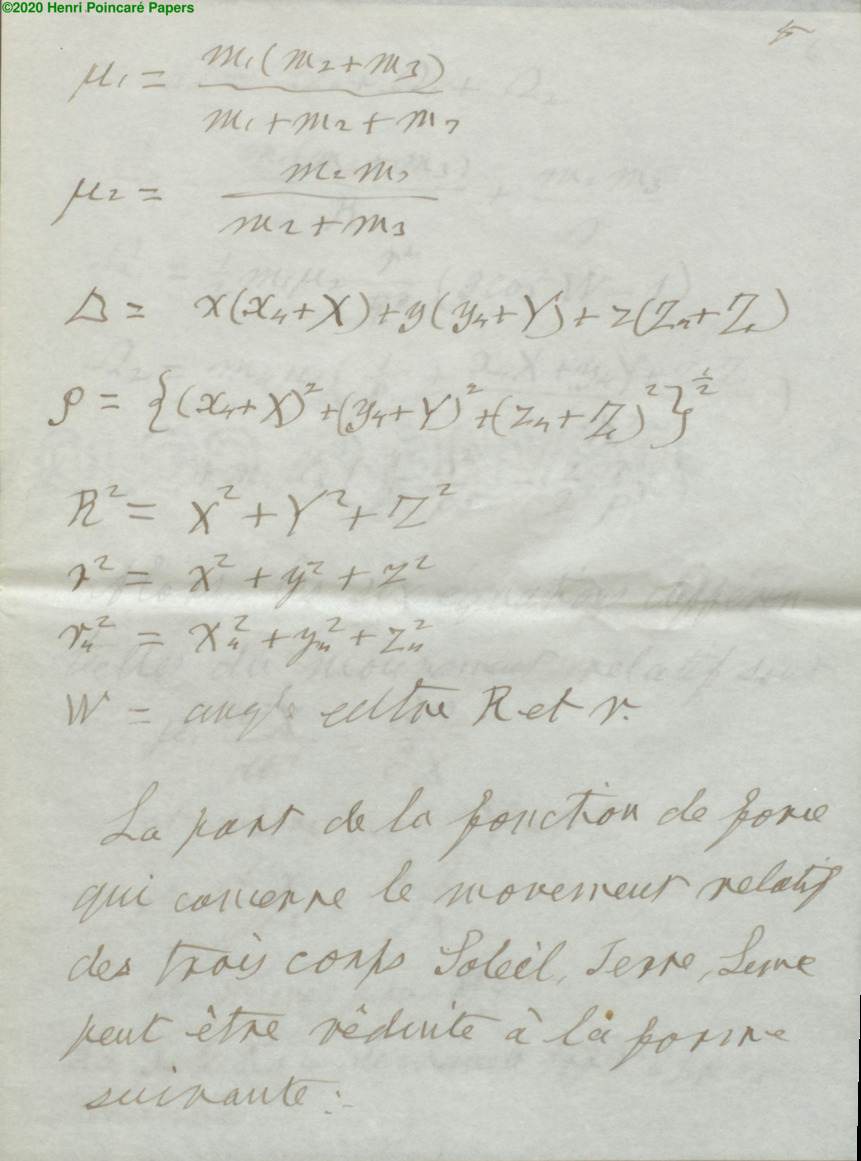 ©2020 Henri Poincaré Papers
5
μ₁ = m₁(m₂+m₃) / (m₁+m₂+m₃)
μ₂ = m₂m₃ / (m₂+m₃)
Δ = x(x₄+X)+y(y₄+Y)+z(z₄+Z)
ρ = {(x₄+X)²+(y₄+Y)²+(z₄+Z)²}^½
R² = X²+Y²+Z²
r² = x²+y²+z²
r₄² = x₄²+y₄²+z₄²
W = angle entre R et r.
La part de la fonction de force
qui concerne le movement relatif
des trois corps Soleil, Terre, Lune
peut être réduite à la forme
suivante:-